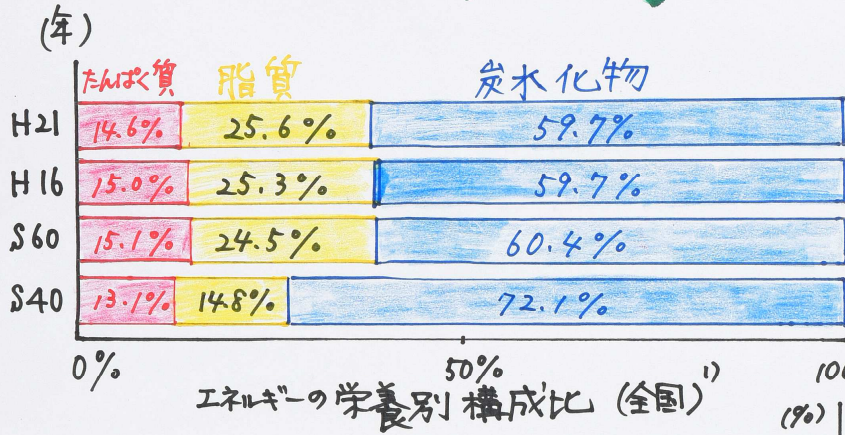 (年)
たんぱく質 脂質 炭水化物
H21 14.6% 25.6% 59.7%
H16 15.0% 25.3% 59.7%
S60 15.1% 24.5% 60.4%
S40 13.1% 14.8% 72.1%
0% 50% 100
エネルギーの栄養別構成比(全国)1)
(%)